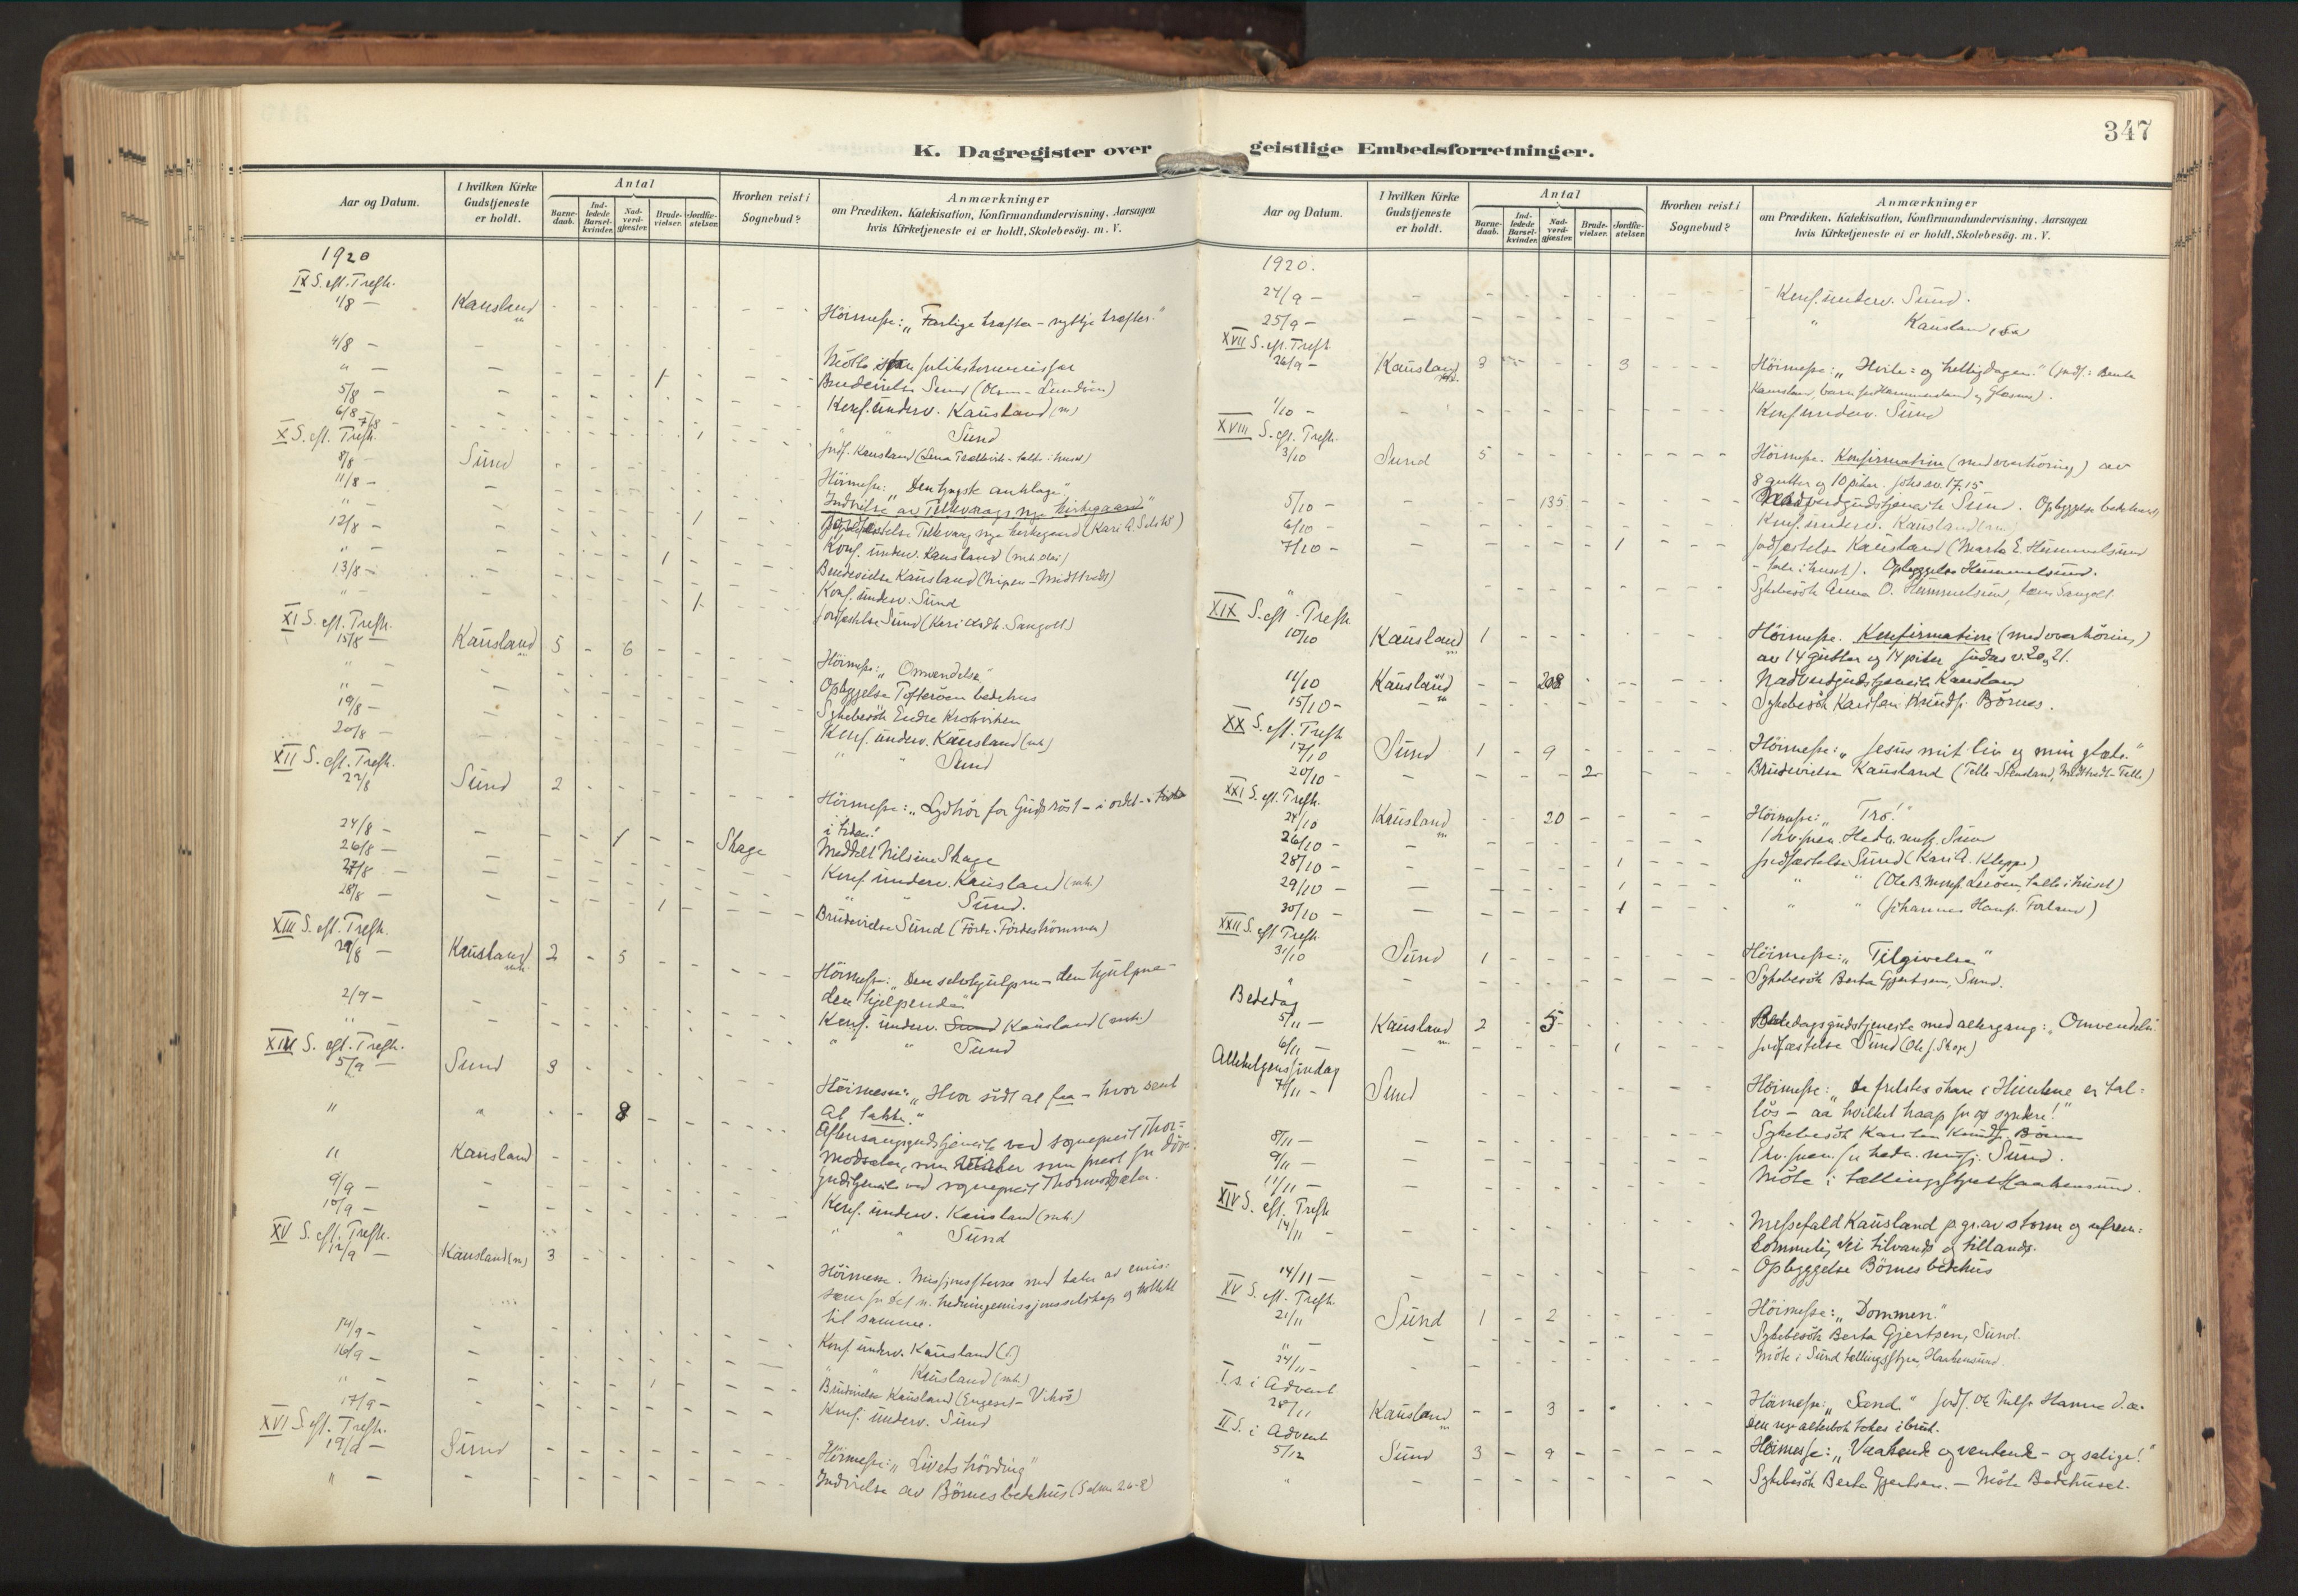 347
K. Dagregister over geistlige Embedsforretninger.
Aar og Datum.
I hvilken Kirke Gudstjeneste er holdt.
Antal
Barne-daab.
Ind-ledede Barsel-kvinder.
Nad-verd-gjæster.
Brude-vielser.
Jordfæ-stelser.
Hvorhen reist i Sognebud?
Anmærkninger
om Prædiken, Katekisation, Konfirmandundervisning, Aarsagen
hvis Kirketjeneste ei er holdt, Skolebesög. m. V.
1920
IX S. eft. Trefh.
1/8 — Kausland - - - - - - Höimesse: „Farlige kræfter - nyttige kræfter."
4/8 —
" — 1 Brudevielse Sund
5/8 — Konf. underv. Kausland (m)
6/8 - 7/8 — " " Sund
X S. eft. Trefh. 1 Jordf. Kausland
8/8 — Sund Höimesse: „Den tyngste anklage"
11/8 — Indvielse av Tellevaags nye kirkegaard
" 1 Jordfæstelse Tellevaag nye kirkegaard
12/8 — Konf. underv. Kausland
" 1 Brudevielse Kausland
13/8 — Konf. underv. Sund
" 1 Jordfæstelse Sund
XI S. eft. Trefh.
15/8 — Kausland 5 - 6 Höimesse: „Omvendelse"
" Opbyggelse Tofteröen bedehus
" Sykebesök Endre Krokviken
19/8 — Konf. underv. Kausland (mh.)
20/8 — " " Sund
XII S. eft. Trefh.
22/8 Sund 2 Höimesse: „Lydhör for Guds röst - i ordet -
i tiden!
24/8 — 1 Skage Meddelt Nilsine Skage
26/8 — Konf. underv. Kausland (mh.)
27/8 — " " Sund.
28/8 — 1 Brudevielse Sund
XIII S. eft. Trefh.
29/8 — Kausland 2 - 5 Höimesse: „Den selvhjulpne - den hjulpne -
den hjelpende"
2/9 — Konf. underv. Kausland (mh.)
" " " Sund
XIV S. eft. Trefh.
5/9 — Sund 3 Höimesse: „Hvor södt at faa - hvor sent
at takke."
" " 8 Aftensangsgudstjeneste ved sogneprest Thor-
" Kausland modsæter, som
gudstjeneste ved sogneprest Thormodsæter.
9/9 — Konf. underv. Kausland (mh.)
10/9 — " " Sund
XV S. eft. Trefh.
12/9 — Kausland (m) 3 Höimesse. Missjonsstevne med taler av emis-
hedningemissjonsselskap og kollekt
til samme.
14/9 — Konf. underv. Kausland
16/9 — " " Kausland (mh.)
" — 1 Brudevielse Kausland
17/9 — Konf. underv. Sund
XVI S. eft. Trefh.
19/9 — Sund Höimesse: „Livets hövding"
" — Indvielse av Börnes bedehus
Aar og Datum.
I hvilken Kirke Gudstjeneste er holdt.
Antal
Barne-daab.
Ind-ledede Barsel-kvinder.
Nad-verd-gjæster.
Brude-vielser.
Jordfæ-stelser.
Hvorhen reist i Sognebud?
Anmærkninger
om Prædiken, Katekisation, Konfirmandundervisning, Aarsagen
hvis Kirketjeneste ei er holdt, Skolebesög. m. V.
1920.
24/9 — Konf. underv. Sund.
25/9 — " Kausland
XVII S. eft. Trefh.
26/9 — Kausland 3 3 Höimesse: „Hvile- og helligdagen."
1/10 — Konf. underv. Sund
XVIII S. eft. Trefh.
3/10 Sund 5 Höimesse. Konfirmation (med overhöring) av
8 gutter og 10 piker. Johs. ev. 17.15
5/10 — 135 Nadverdgudstjeneste Sund. Opbyggelse bedehuset
6/10 — Konf. underv. Kausland
7/10 — 1 Jordfæstelse Kausland (Marta E. Hummelsund
- tale i huset). Opbyggelse Hummelsund.
" Sykebesök Anna O. Hummelsund,
XIX S. eft. Trefh.
10/10 Kausland 1 Höimesse. Konfirmation (med overhöring)
av 14 gutter og 14 piker Judas v. 20, 21.
11/10 Kausland - - 208 Nadverdgudstjeneste Kausland
15/10 — Sykebesök Karsten Knuds. Börnes.
XX S. eft. Trefh.
17/10 Sund 1 - 9 Höimesse: „Jesus mit liv og min glæde."
20/10 — 2 Brudevielse Kausland
XXI S. eft. Trefh.
24/10 Kausland - - 20 Höimesse: „Tro!"
26/10 — Kv. foren. Hedn. miss. Sund
28/10 — 1 Jordfæstelse Sund (Kari A. Kleppe)
29/10 — 1 " " (tale i huset)
30/10 — 1 " " (Johannes Hans. Forland)
XXII S. eft. Trefh.
31/10 Sund 1 Höimesse: „Tilgivelse"
" Sykebesök Berta Gjertsen, Sund.
Bededag
5/11 — Kausland 2 - 5 Bededagsgudstjeneste med altergang: „Omvendelse
6/11 — 1 Jordfæstelse Sund
Allehelgenssöndag
7/11 — Sund Höimesse: „De frelstes skare i Himlene er tal-
lös - aa hvilket haap for os syndere!"
Sykebesök Karsten Knuds. Börnes
8/11 — Kv. foren. for hedn. miss. Sund.
9/11 —
11/11 — Möte i tællingsstyret Haakensund.
XIV S. eft. Trefh.
14/11 — Messefald Kausland p. gr. av storm og ufrem-
kommelig vei tilvands og tillands.
14/11 — Opbyggelse Börnes bedehus
XV S. eft. Trefh.
21/11 Sund 1 - 2 Höimesse: „Dommen."
" Sykebesök Berta Gjertsen, Sund.
24/11 — Möte i Sund tællingsstyre, Haakensund.
I. s. i Advent
28/11 Kausland - - 3 Höimesse:
den nye alterbok tokes i bruk.
II S. i Advent
5/12 Sund 3 - 9 Höimesse: „Vaakende og ventende - og salige!"
" Sykebesök Berta Gjertsen. — Möte Bedehuset.